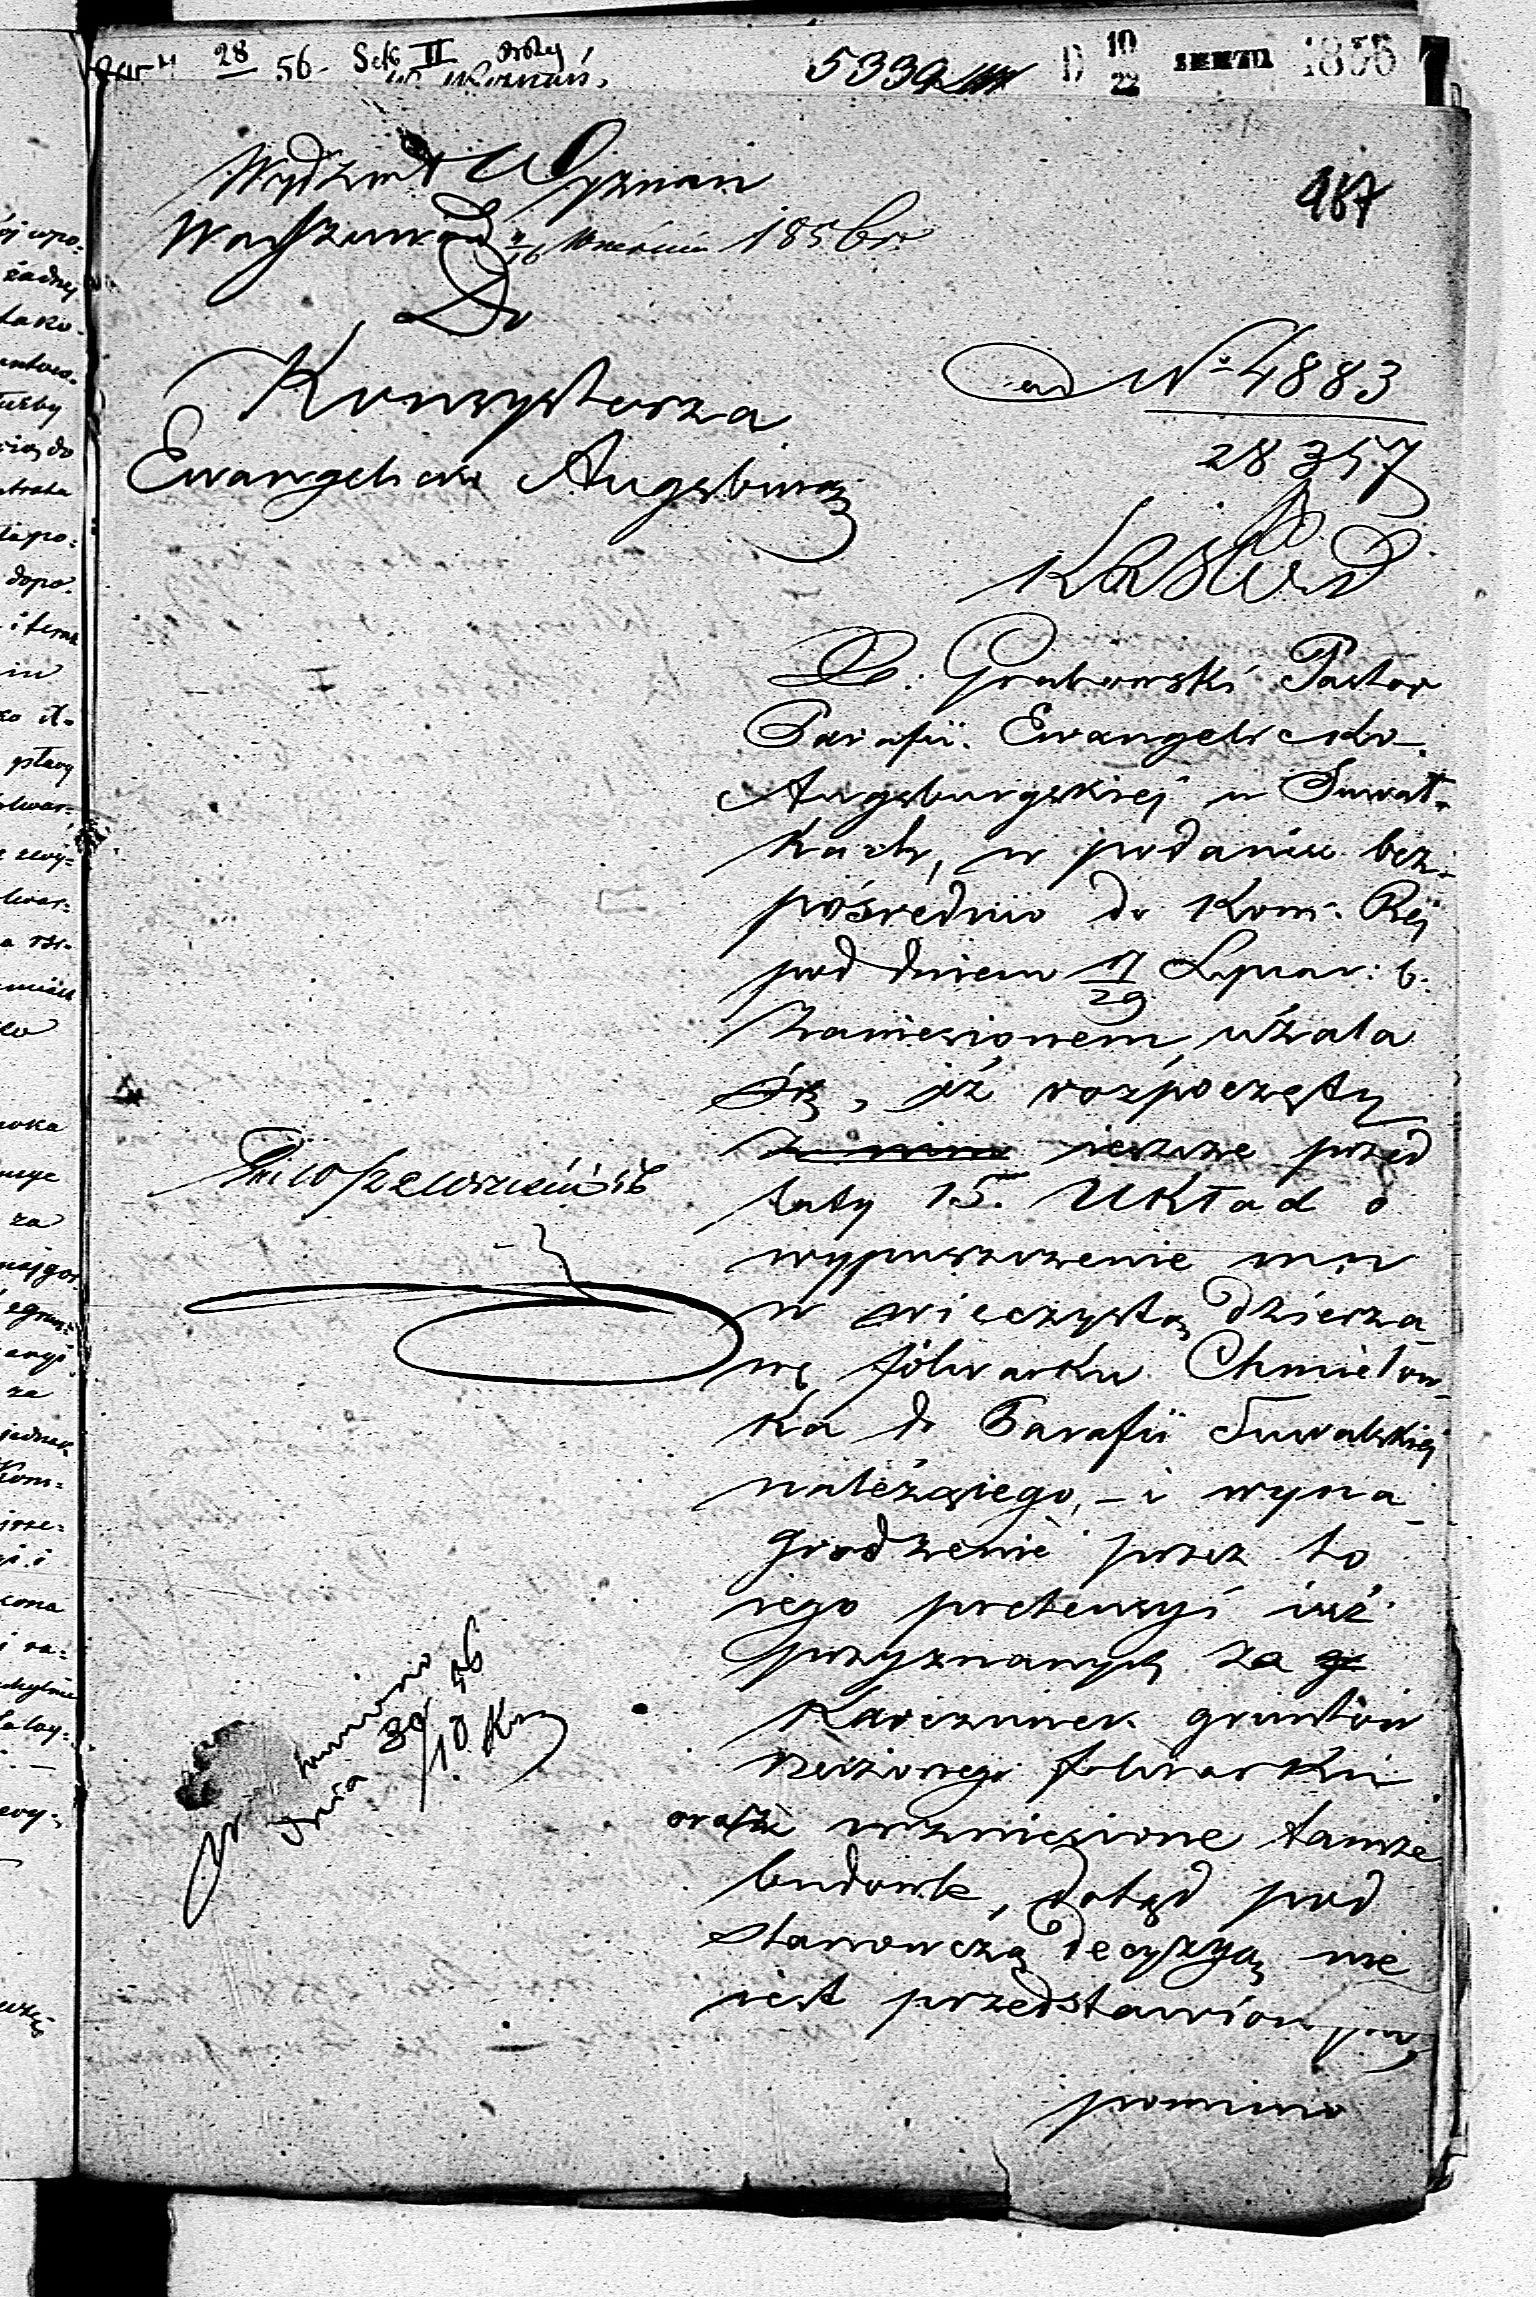 28 56. Sek II
5339 D 10/22 1856
Wydział Wyznań
467
Warszawa 4/16 Września 1856 r.
Do
Konsystorza
Ewangelicko Augsburg
ad No 4883
28357
KRSWD
X. Grabowski Pastor
Parafii Ewangelicko-
Augsburgskiej w Suwał-
kach, w podaniu bez-
pośrednio do Kom. Rej
pod dniem 17/29 Lipca r: b.
zaniesionem, użala
się, iż rozpoczęty
jeszcze przed
laty 15. Układ o
wypuszczenie mu
w wieczystą dzierża
wę folwarku Chmielów-
ka do Parafii Suwalskiej
należącego, - i wyna
grodzenie przez to
jego pretensyi już
przyznanych za
karczunek gruntów
rzeczonego folwarku
oraz wzniesione tamże
budowle, dotąd pod
stanowczą decyzyą nie
jest przedstawion
pomimo
dnia 30/10